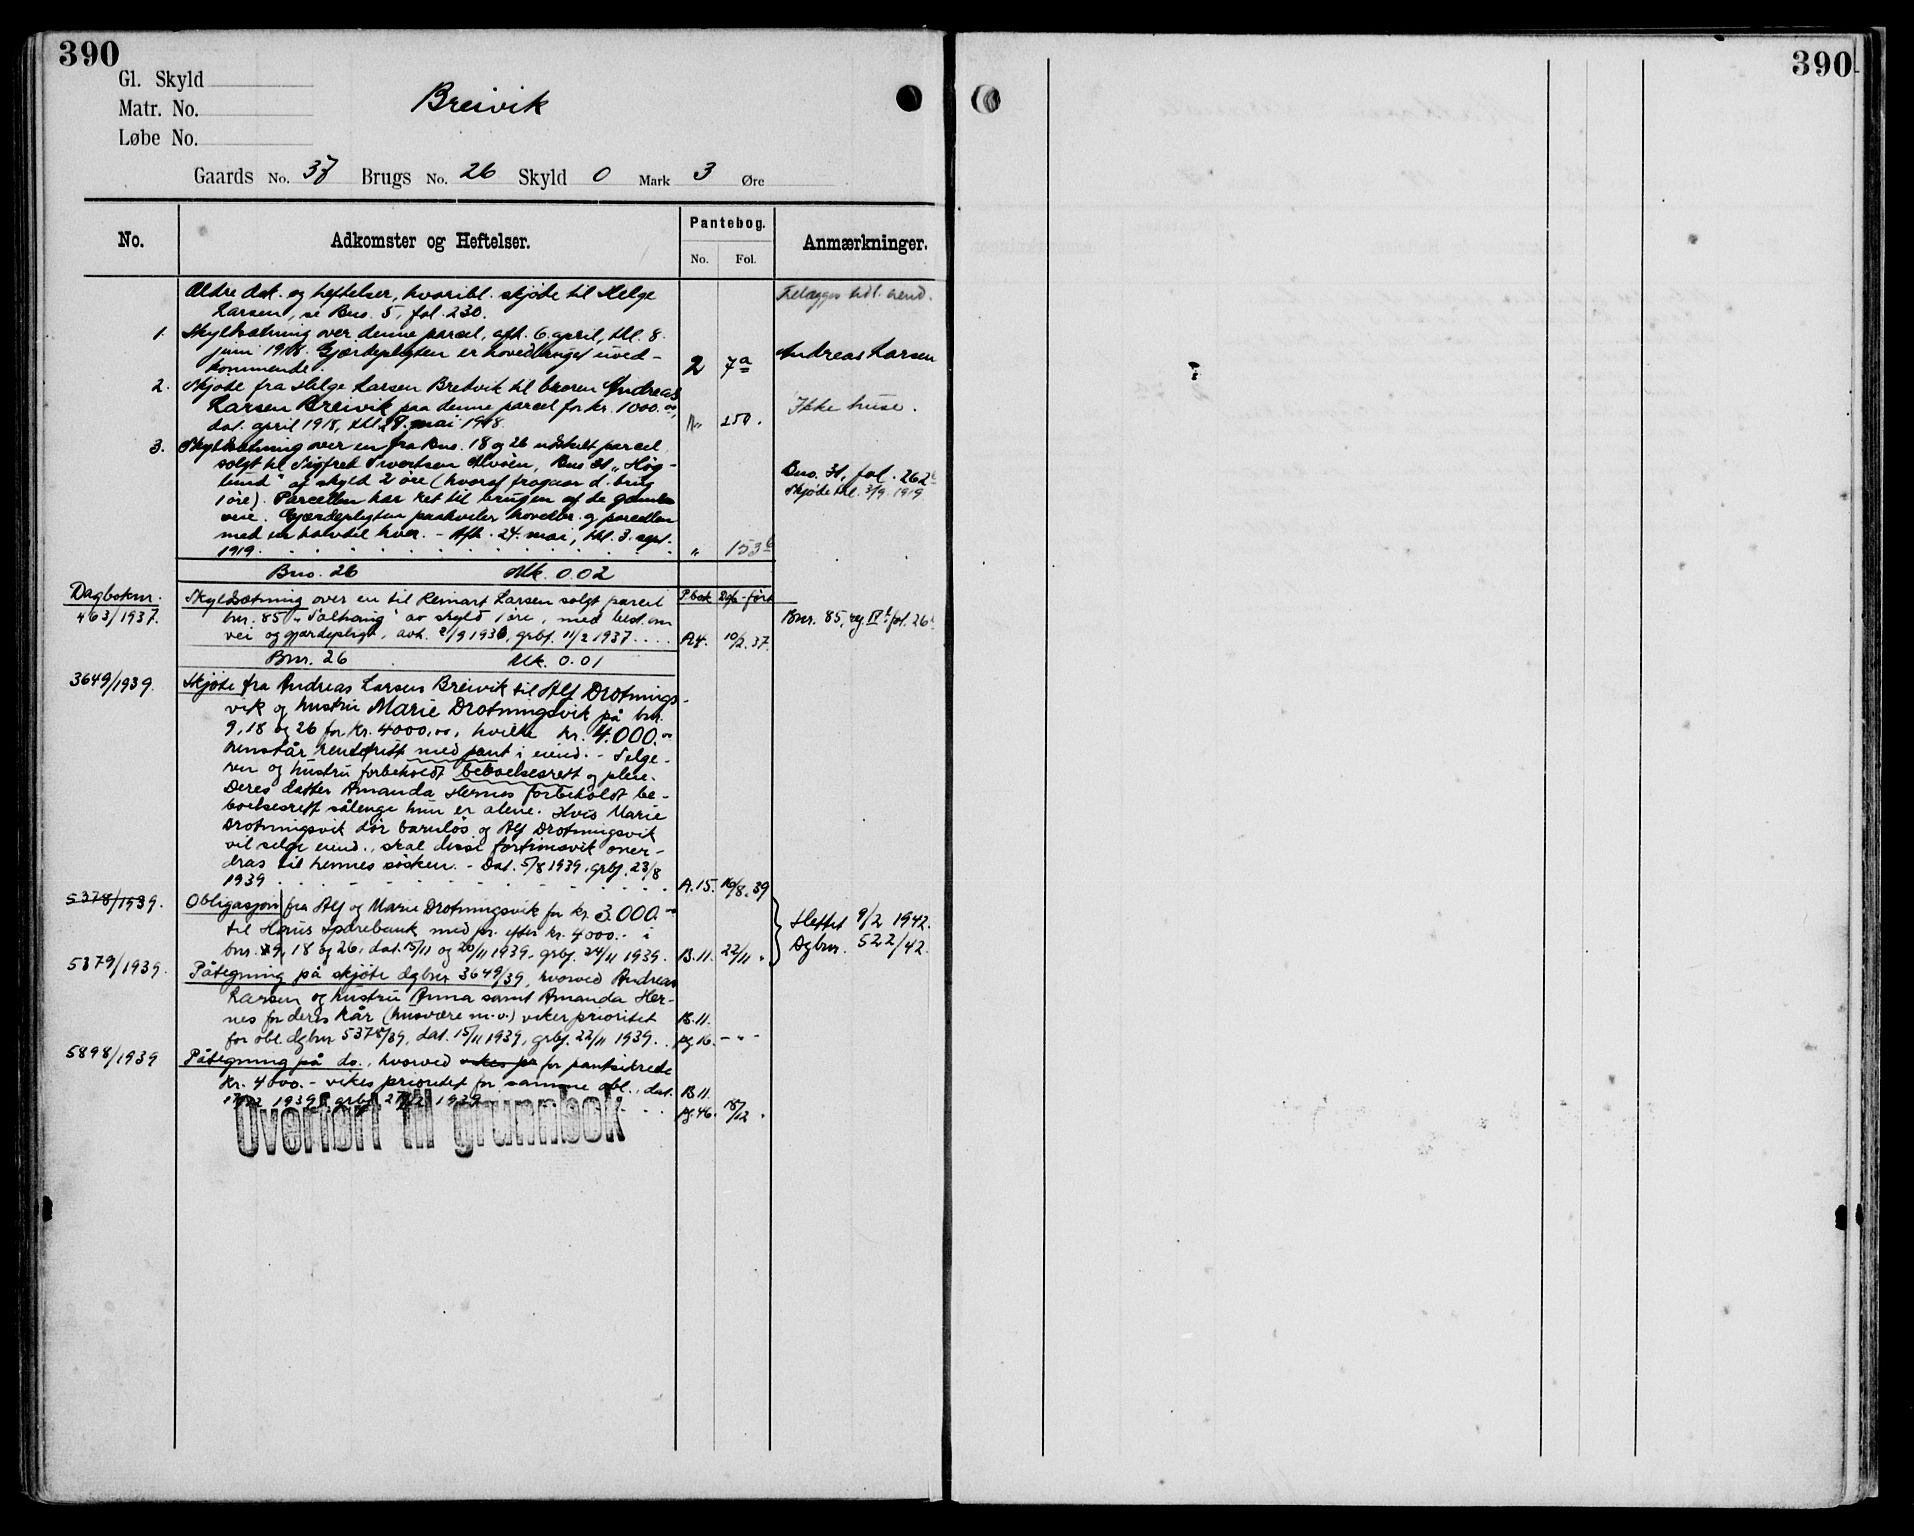 390
Gl. Skyld
Matr. No.
Løbe No.
Breivik
Gaards No. 37 Brugs No. 26 Skyld 0 Mark 3 Øre
No. Adkomster og Heftelser. Pantebog. No. Fol. Anmærkninger.
Ældre dok. og heftelser, hvoribl. skjøte til Helge
Larsen, se Bno. 5, fol. 230.
1. Skyldsætning over denne parcel, afh. 6. april, thl. 8.
juni 1918. Gjærdepligten er hovedbruget uved-
kommende. 2 7a Andreas Larsen
2. Skjøte fra Helge Larsen Breivik til broren Andreas
Larsen Breivik paa denne parcel for kr. 1000.00, Ikke huse.
dat. april 1918, thl. 8. mai 1918. 250.
3. Skyldsætning over en fra Bno. 18 og 26 utskilt parcel,
solgt til Sigfred Sivertsen Alvøen, Bno. 31 „Høg-
lund" af skyld 2 øre (hvoraf fragaar d. brug
1 øre). Parcellen har ret til brugen af de gamle
veie. Gjærdepligten paahviler hovedbr. og parcellen
med en halvdel hver. - Afh. 24. mai, thl. 3. sept.
1919. „ 153b
Bno. 31, fol. 262
Skjøte thl. 3/9. 1919
Bno. 26 Mk. 0.02
Dagboknr. P.bok Dgb-ført
463/1937. Skyldsætning over en til Reinart Larsen solgt parcel
bnr. 85 „Solhaug" av skyld 1 øre, med best. om
vei og gjærdeplikt, avh. 2/9 1936, grbf. 11/2 1937. A.4. 10/2.37.
Bnr. 85, reg. IV fol. 26
Bnr. 26 Mk. 0.01
3649/1939. Skjøte fra Andreas Larsen Breivik til Alf Drotnings-
vik og hustru Marie Drotningsvik på bnr.
9, 18 og 26 for kr. 4000,00, hvilke kr. 4.000.00
henstår rentefritt med pant i eiend. - Selge-
ren og hustru forbeholdt beboelsesrett og pleie.
Deres datter Amanda Hernes forbeholdt be-
boelsesrett sålenge hun er alene. Hvis Marie
Drotningsvik dør barnløs og Alf Drotningsvik
vil selge eiend., skal disse fortinnsvik over-
dras til hennes søsken. - Dat. 5/8 1939, grbf. 23/8
1939 A.15. 16/8.39
5378/1939. Obligasjon fra Alf og Marie Drotningsvik for kr. 3.000.-
til Haus Sparebank med pr. efter kr. 4000.- i
bnr. 9, 18 og 26, dat. 15/11 og 20/11 1939, grbf. 24/11 1939. B.11. 22/11.
Slettet 9/2 1942.
Dgbnr. 522/42.
5379/1939. Påtegning på skjøte dgbnr 3649/39, hvorved Andreas
Larsen og hustru Anna samt Amanda Her-
nes for deres kår (husvære m.v.) viker prioritet B.11.
for obl dgbnr 5378/39, dat. 15/11 1939, grbf. 22/11 1939. pg. 16. - " -
5898/1939 Påtegning på do., hvorved vikes pr for pantsikrede
kr. 4000.- vikes prioritet for samme obl., dat. B 11.
1939, grbf. 1939 pg. 46. 18/12.
Overført til grunnbok
390